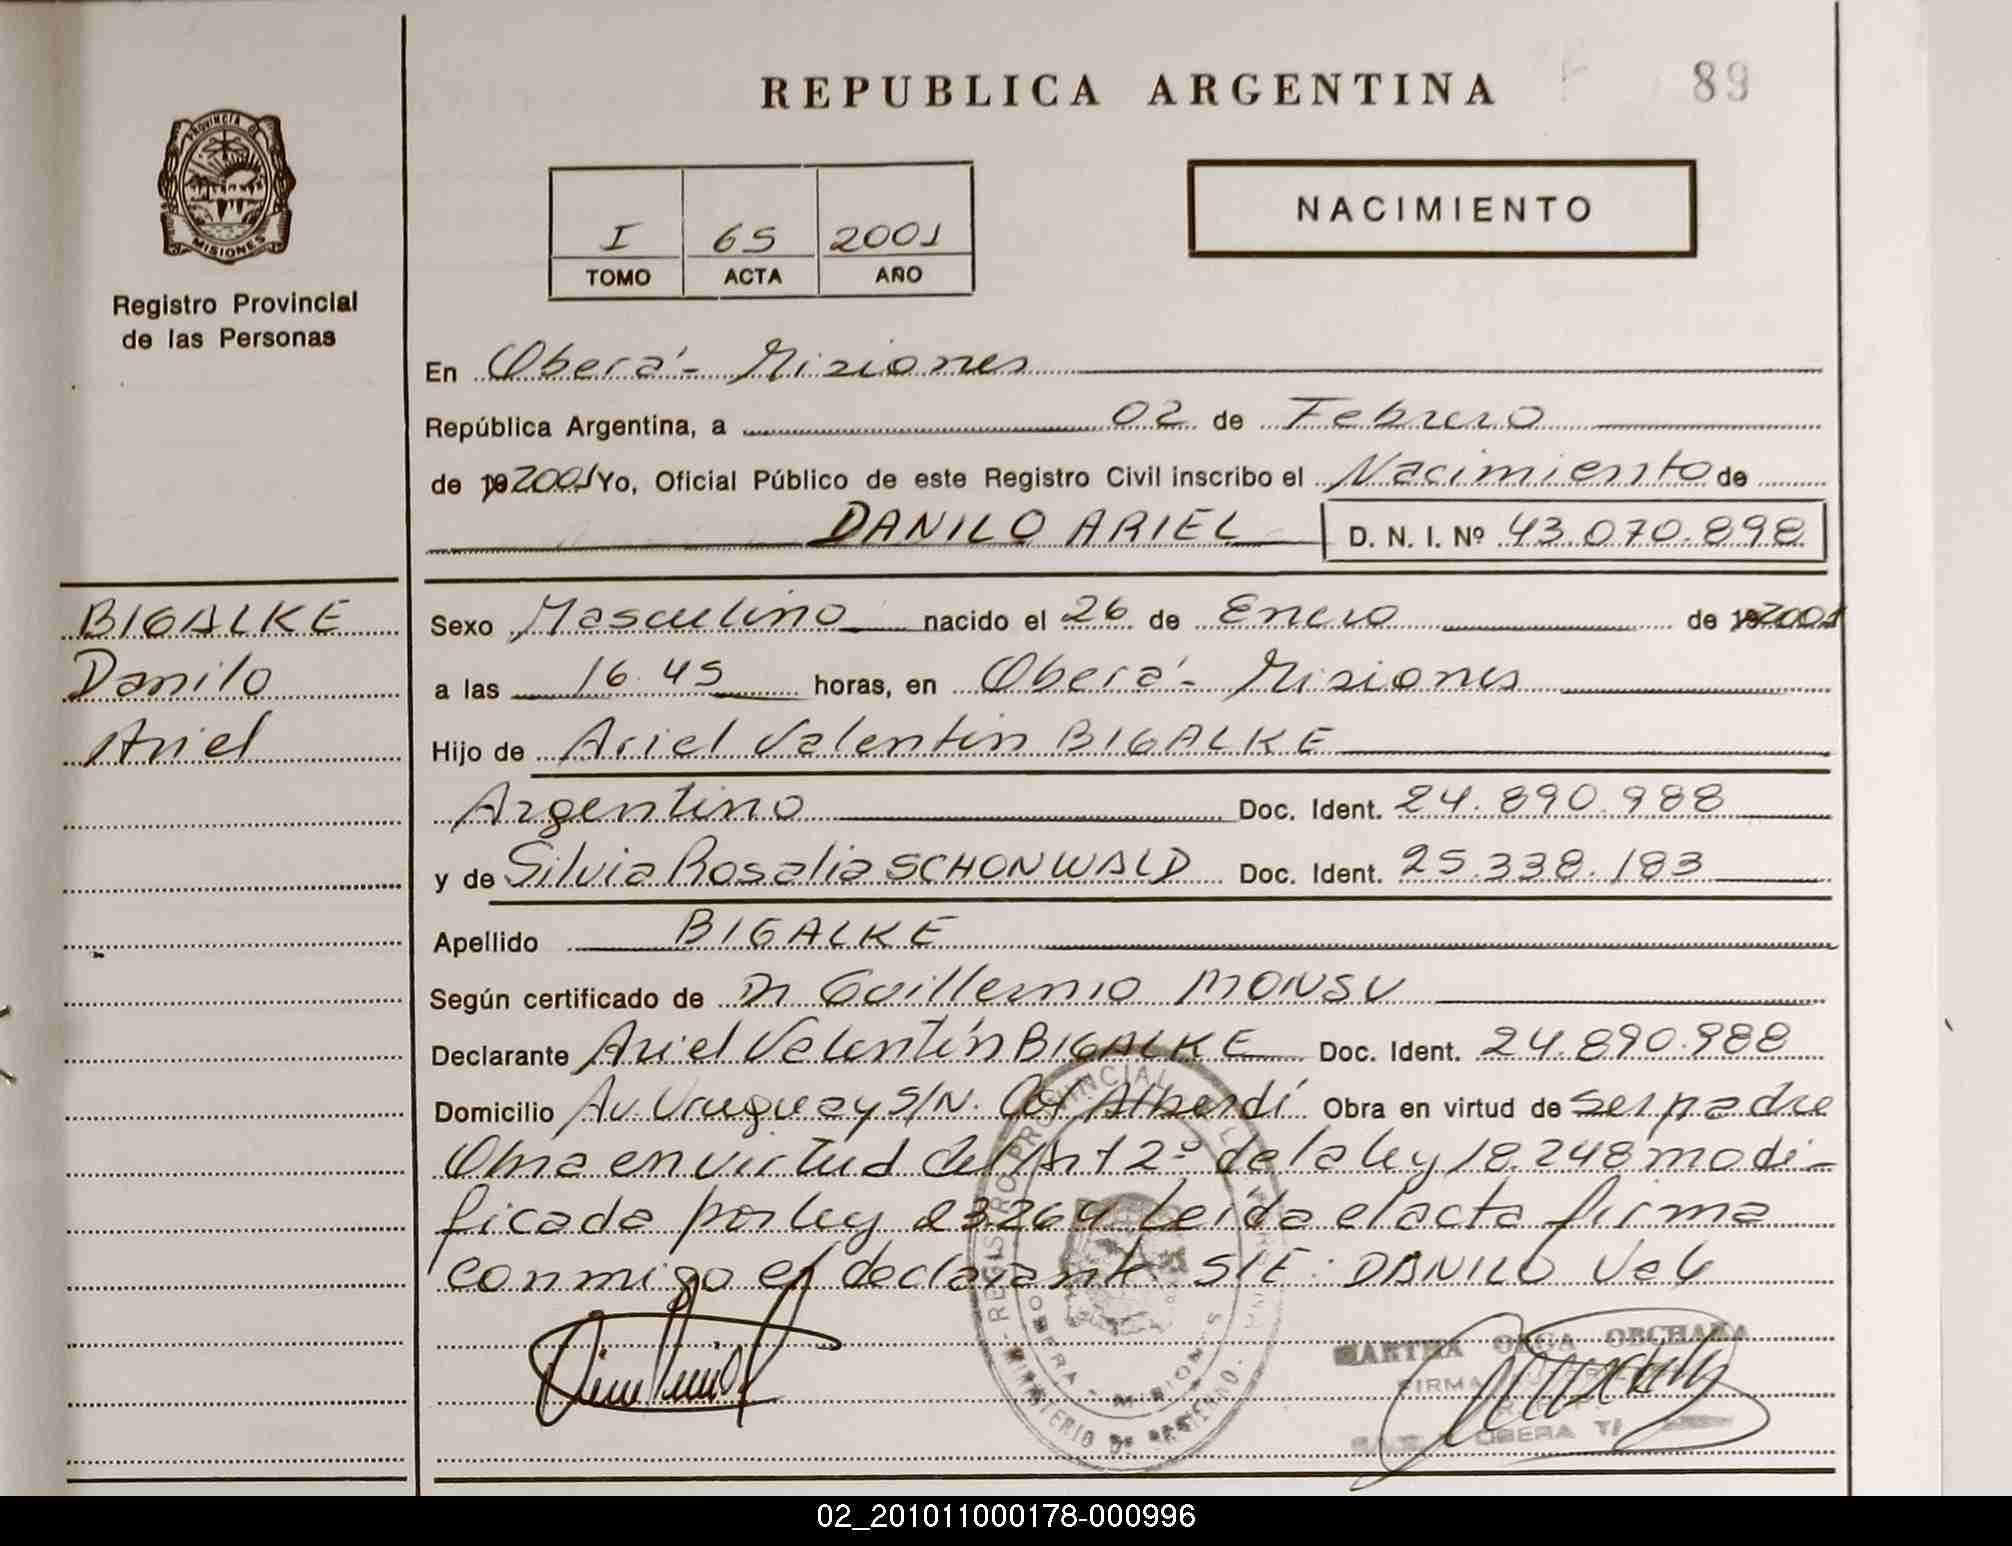 REPUBLICA ARGENTINA
89
PROVINCIA DE
MISIONES
Registro Provincial
de las Personas
I 65 2001
TOMO ACTA AÑO
NACIMIENTO
En Oberá - Misiones
República Argentina, a 02 de Febrero
de 19 2001 Yo, Oficial Público de este Registro Civil inscribo el Nacimiento de
DANILO ARIEL D. N. I. Nº 43.070.898
BIGALKE
Danilo
Ariel
Sexo Masculino nacido el 26 de Enero de 19 2001
a las 16.45 horas, en Oberá - Misiones
Hijo de Ariel Valentín BIGALKE
Argentino Doc. Ident. 24.890.988
y de Silvia Rosalia SCHONWALD Doc. Ident. 25.338.183
Apellido BIGALKE
Según certificado de Dr Guillermo MONSU
Declarante Ariel Valentín BIGALKE Doc. Ident. 24.890.988
Domicilio Av. Uruguay S/N. Col Alberdí Obra en virtud de ser padre
Obra en virtud del Art 2º de la ley 18.248 modi-
ficada por ley 23264 Leída el acta firma
conmigo el declarante. S/E: DANILO Vale
REGISTRO PROVINCIAL DE LAS PERSONAS
OBERA - MISIONES
MINISTERIO DE GOBIERNO
MARTHA OLGA
FIRMA
OBERA
02_201011000178-000996